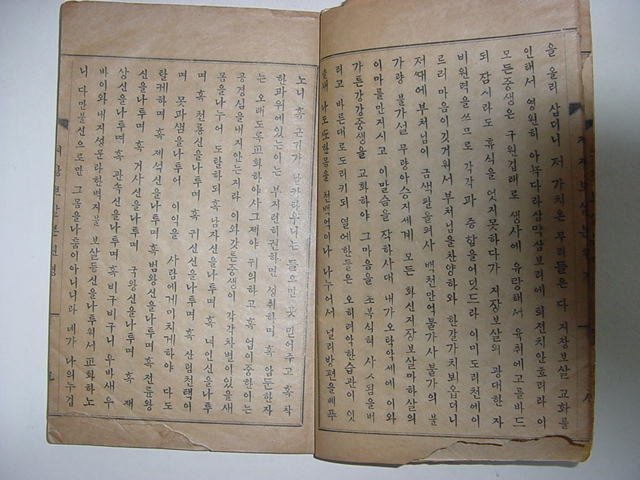 을 울리 삼더니 저 가치온무리들은다 지장보살 교화를
인해서 영원히 아뇩다라삼먁삼보리에 퇴전치안흐려라 이
모든중생은 구원겁래로 생사에 유랑해서 육취에고를바드
되 잠시라도 휴식을 엇지못하다가 지장보살의 광대한 자
비원력을쓰므로 각각과 증함을어덧드라 이미도리천에이
르러 마음이깃거워서 부처님을찬양하와 한갈가치보옵더니
저때에부처님이 금색팔을펴사 백천만억불가사 불가의 불
가량 불가설 무량아승지세계 모든 화신지장보살마하살의
이마를만지시고 이말슴을작하사대 내가오탁악세에 이와
가튼강강중생을교화하야 그마음을 초복식혀 됨을버
리고 바른대로도리키되 열에한둘은 오히려악한습관이 잇
나도 또한몸을 천백억이나 나누어서 널리방편을베푸
노니 혹 근기가 날카라우니는 들으면곳 믿어주고 혹 착
한과위에잇는이는 부지런히권하면 성취하며 혹 암둔한자
는 오래도록교화하야사그제야 귀의하고 혹 업이중한이는
공경심을내지안는지라 이와갓튼중생이 각각차별이잇슬새
몸을나누어 도탈하되 혹 남자신을나투며 혹 녀인신을나투
며 혹 천룡신을나투며 혹 귀신신을나투며 혹 산림천택이
며 못과샘을나투어 이익을 사람에게미치게하야 다도
탈케하며 혹 제석신을나투며 혹 범왕신을나투며 혹 전륜왕
신을나투며 혹 거사신을나투며 혹 국왕신을나투며 혹 재
상신을나투며 혹 관속신을나투며 혹 비구비구니 우바새우
바이와 내지성문라한벽지불 보살등신을나투워서교화하노
니 다만불신으로만 그몸을나툼이아니니라 네가 나의누겁